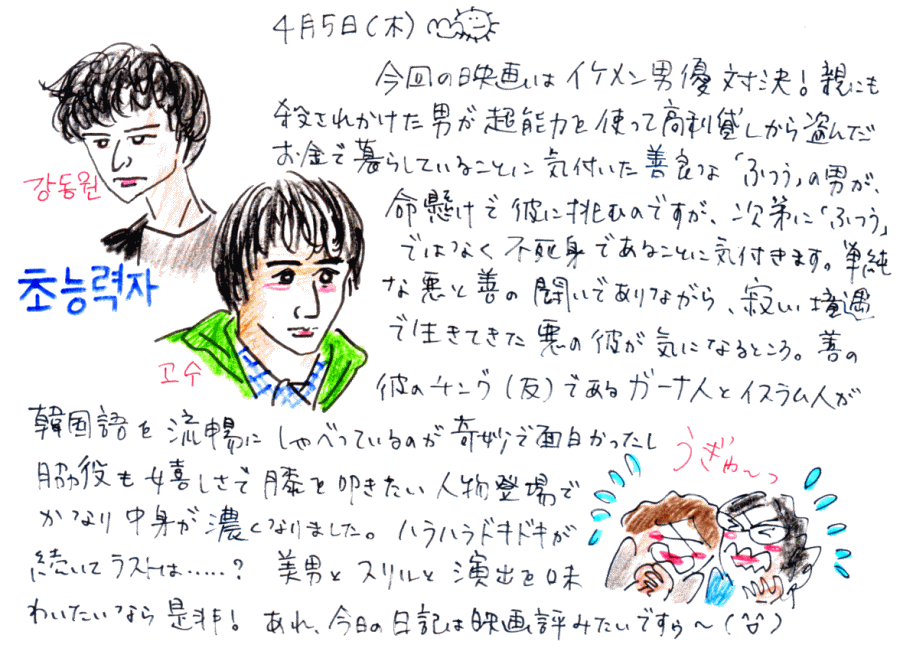 4月5日(木)
今回の映画はイケメン男優対決!親にも
殺されかけた男が超能力を使って高利貸しから盗んだ
お金で暮らしていることに気付いた善良な「ふつう」の男が、
命懸けで彼に挑むのですが、次第に「ふつう」
ではなく不死身であることに気付きます。単純
な悪と善の闘いでありながら、寂しい境遇
で生きてきた悪の彼が気になるところ。善の
彼のチング(友)であるガーナ人とイスラム人が
韓国語を流暢にしゃべっているのが奇妙で面白かったし
脇役も嬉しさで膝を叩きたい人物登場で
かなり中身が濃くなりました。ハラハラドキドキが
続いてラストは……?美男とスリルと演出を味
わいたいなら是非!あれ、今日の日記は映画評みたいですぅ~
강동원
초능력자
고수
うぎゃ~っ